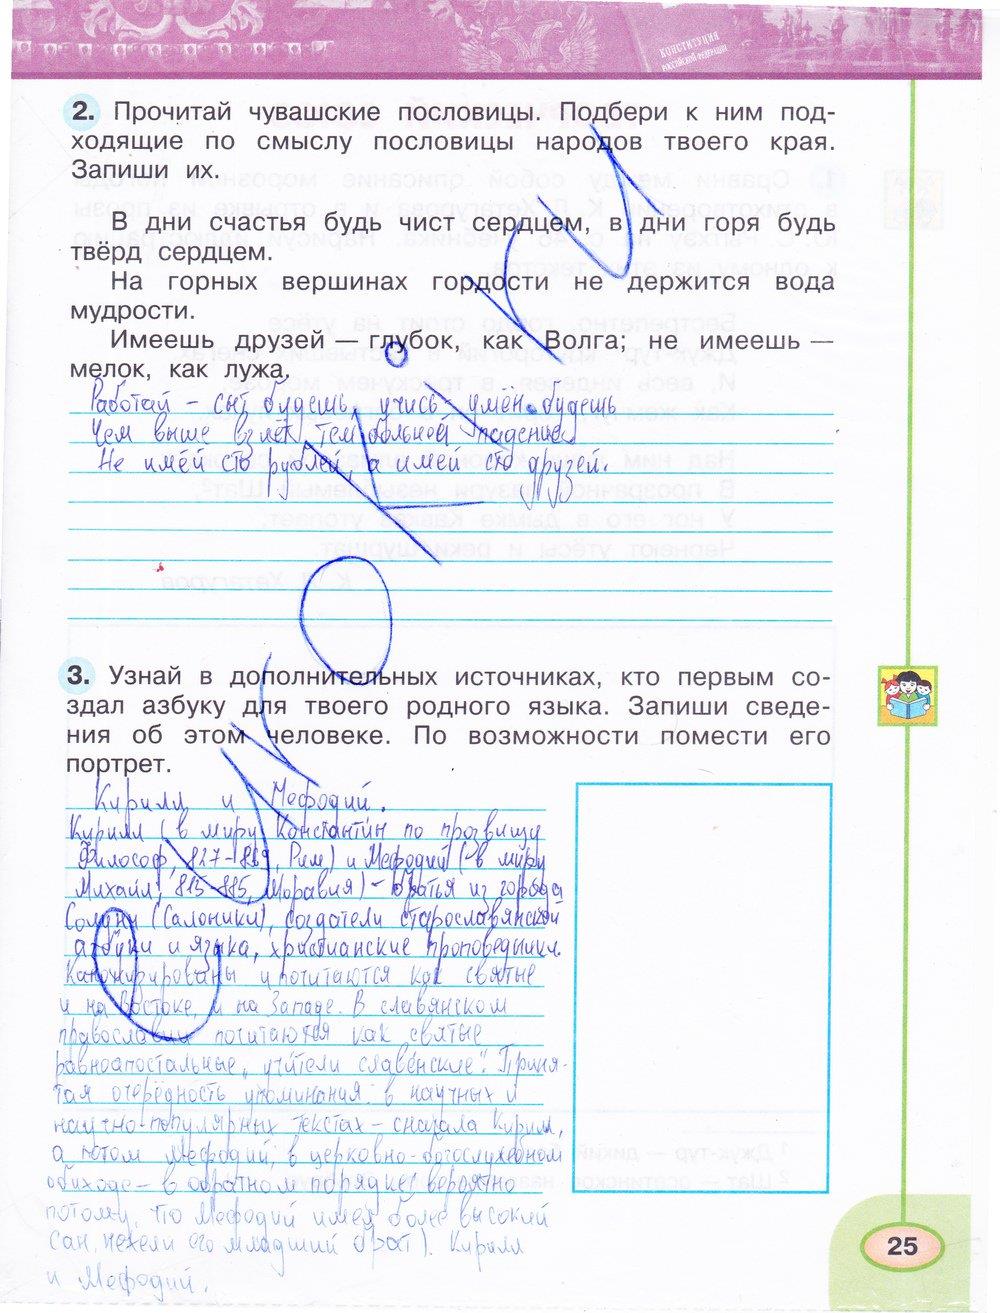 КОНСТИТУЦИЯ
РОССИЙСКОЙ ФЕДЕРАЦИИ
2. Прочитай чувашские пословицы. Подбери к ним под-
ходящие по смыслу пословицы народов твоего края.
Запиши их.
В дни счастья будь чист сердцем, в дни горя будь
твёрд сердцем.
На горных вершинах гордости не держится вода
мудрости.
Имеешь друзей — глубок, как Волга; не имеешь —
мелок, как лужа.
Работай – сыт будешь, учись – умён будешь
Чем выше взлёт, тем больней падение
Не имей сто рублей, а имей сто друзей.
3. Узнай в дополнительных источниках, кто первым со-
здал азбуку для твоего родного языка. Запиши сведе-
ния об этом человеке. По возможности помести его
портрет.
Кирилл и Мефодий.
Кирилл (в миру Константин по прозвищу
Философ, 827-869, Рим) и Мефодий (в миру
Михаил, 815-885, Моравия) – братья из города
Солуни (Салоники), создатели старославянской
азбуки и языка, христианские проповедники.
Канонизированы и почитаются как святые
и на Востоке, и на Западе. В славянском
православии почитаются как святые
равноапостальные, учители славенские". Приня-
тая очерёдность упоминания: в научных и
научно-популярных текстах – сначала Кирилл,
а потом Мефодий, в церковно-богослужебном
обиходе – в обратном порядке (вероятно
потому, что Мефодий имел более высокий
сан, нежели его младший брат). Кирилл
и Мефодий.
25